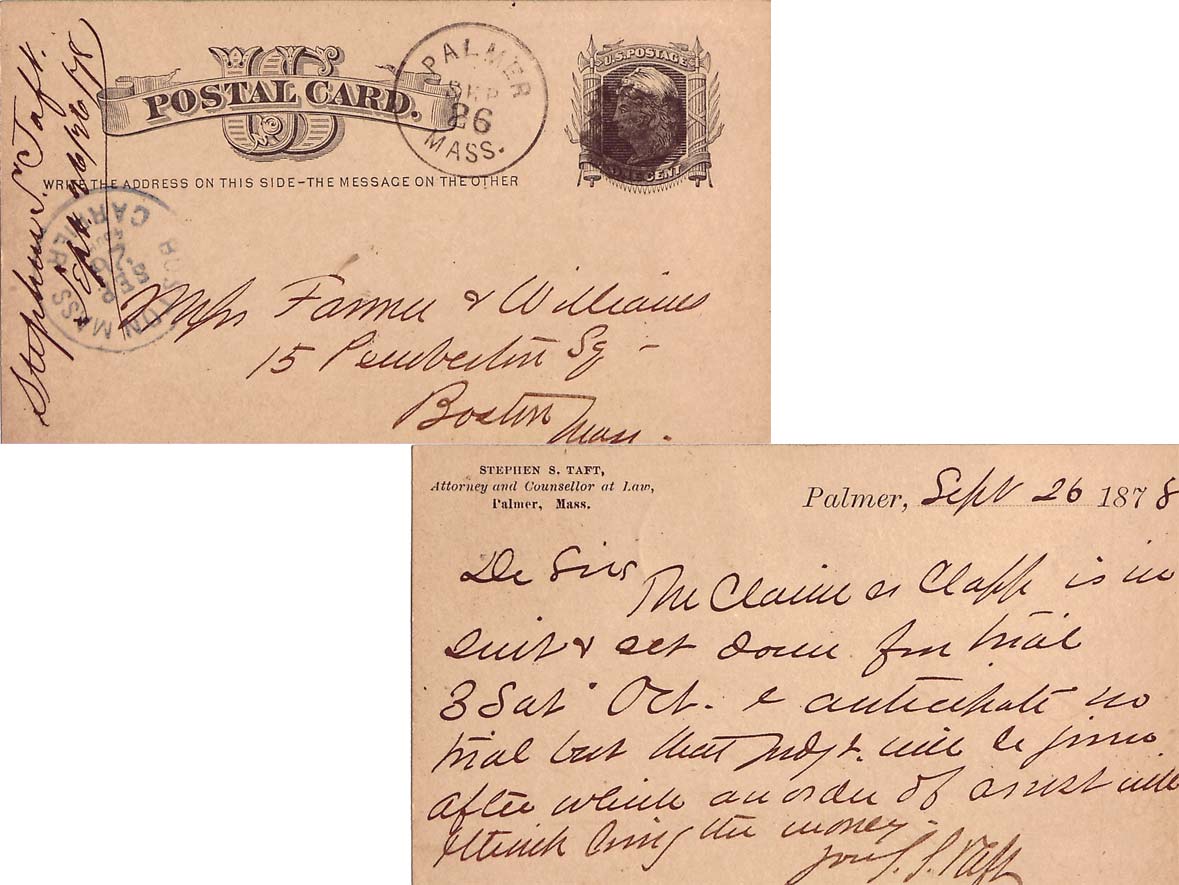 Stephen S. Taft.
Sept. 26/78
US
POSTAL CARD.
PALMER
SEP
26
MASS.
U.S. POSTAGE
ONE CENT
WRITE THE ADDRESS ON THIS SIDE–THE MESSAGE ON THE OTHER
BOSTON MASS
SEP
26
CARRIER
Mess Farmer & Williams
15 Pemberton Sq -
Boston
Mass.
STEPHEN S. TAFT,
Attorney and Counsellor at Law,
Palmer, Mass.
Palmer, Sept 26 1878
De Sirs
The Claim vs Clapp is in
suit & set down for trial
3 Sat Oct. & anticipate no
trial but that judgt. will be given
after which an order of arrest will
I think bring the money.
Yours S. S. Taft